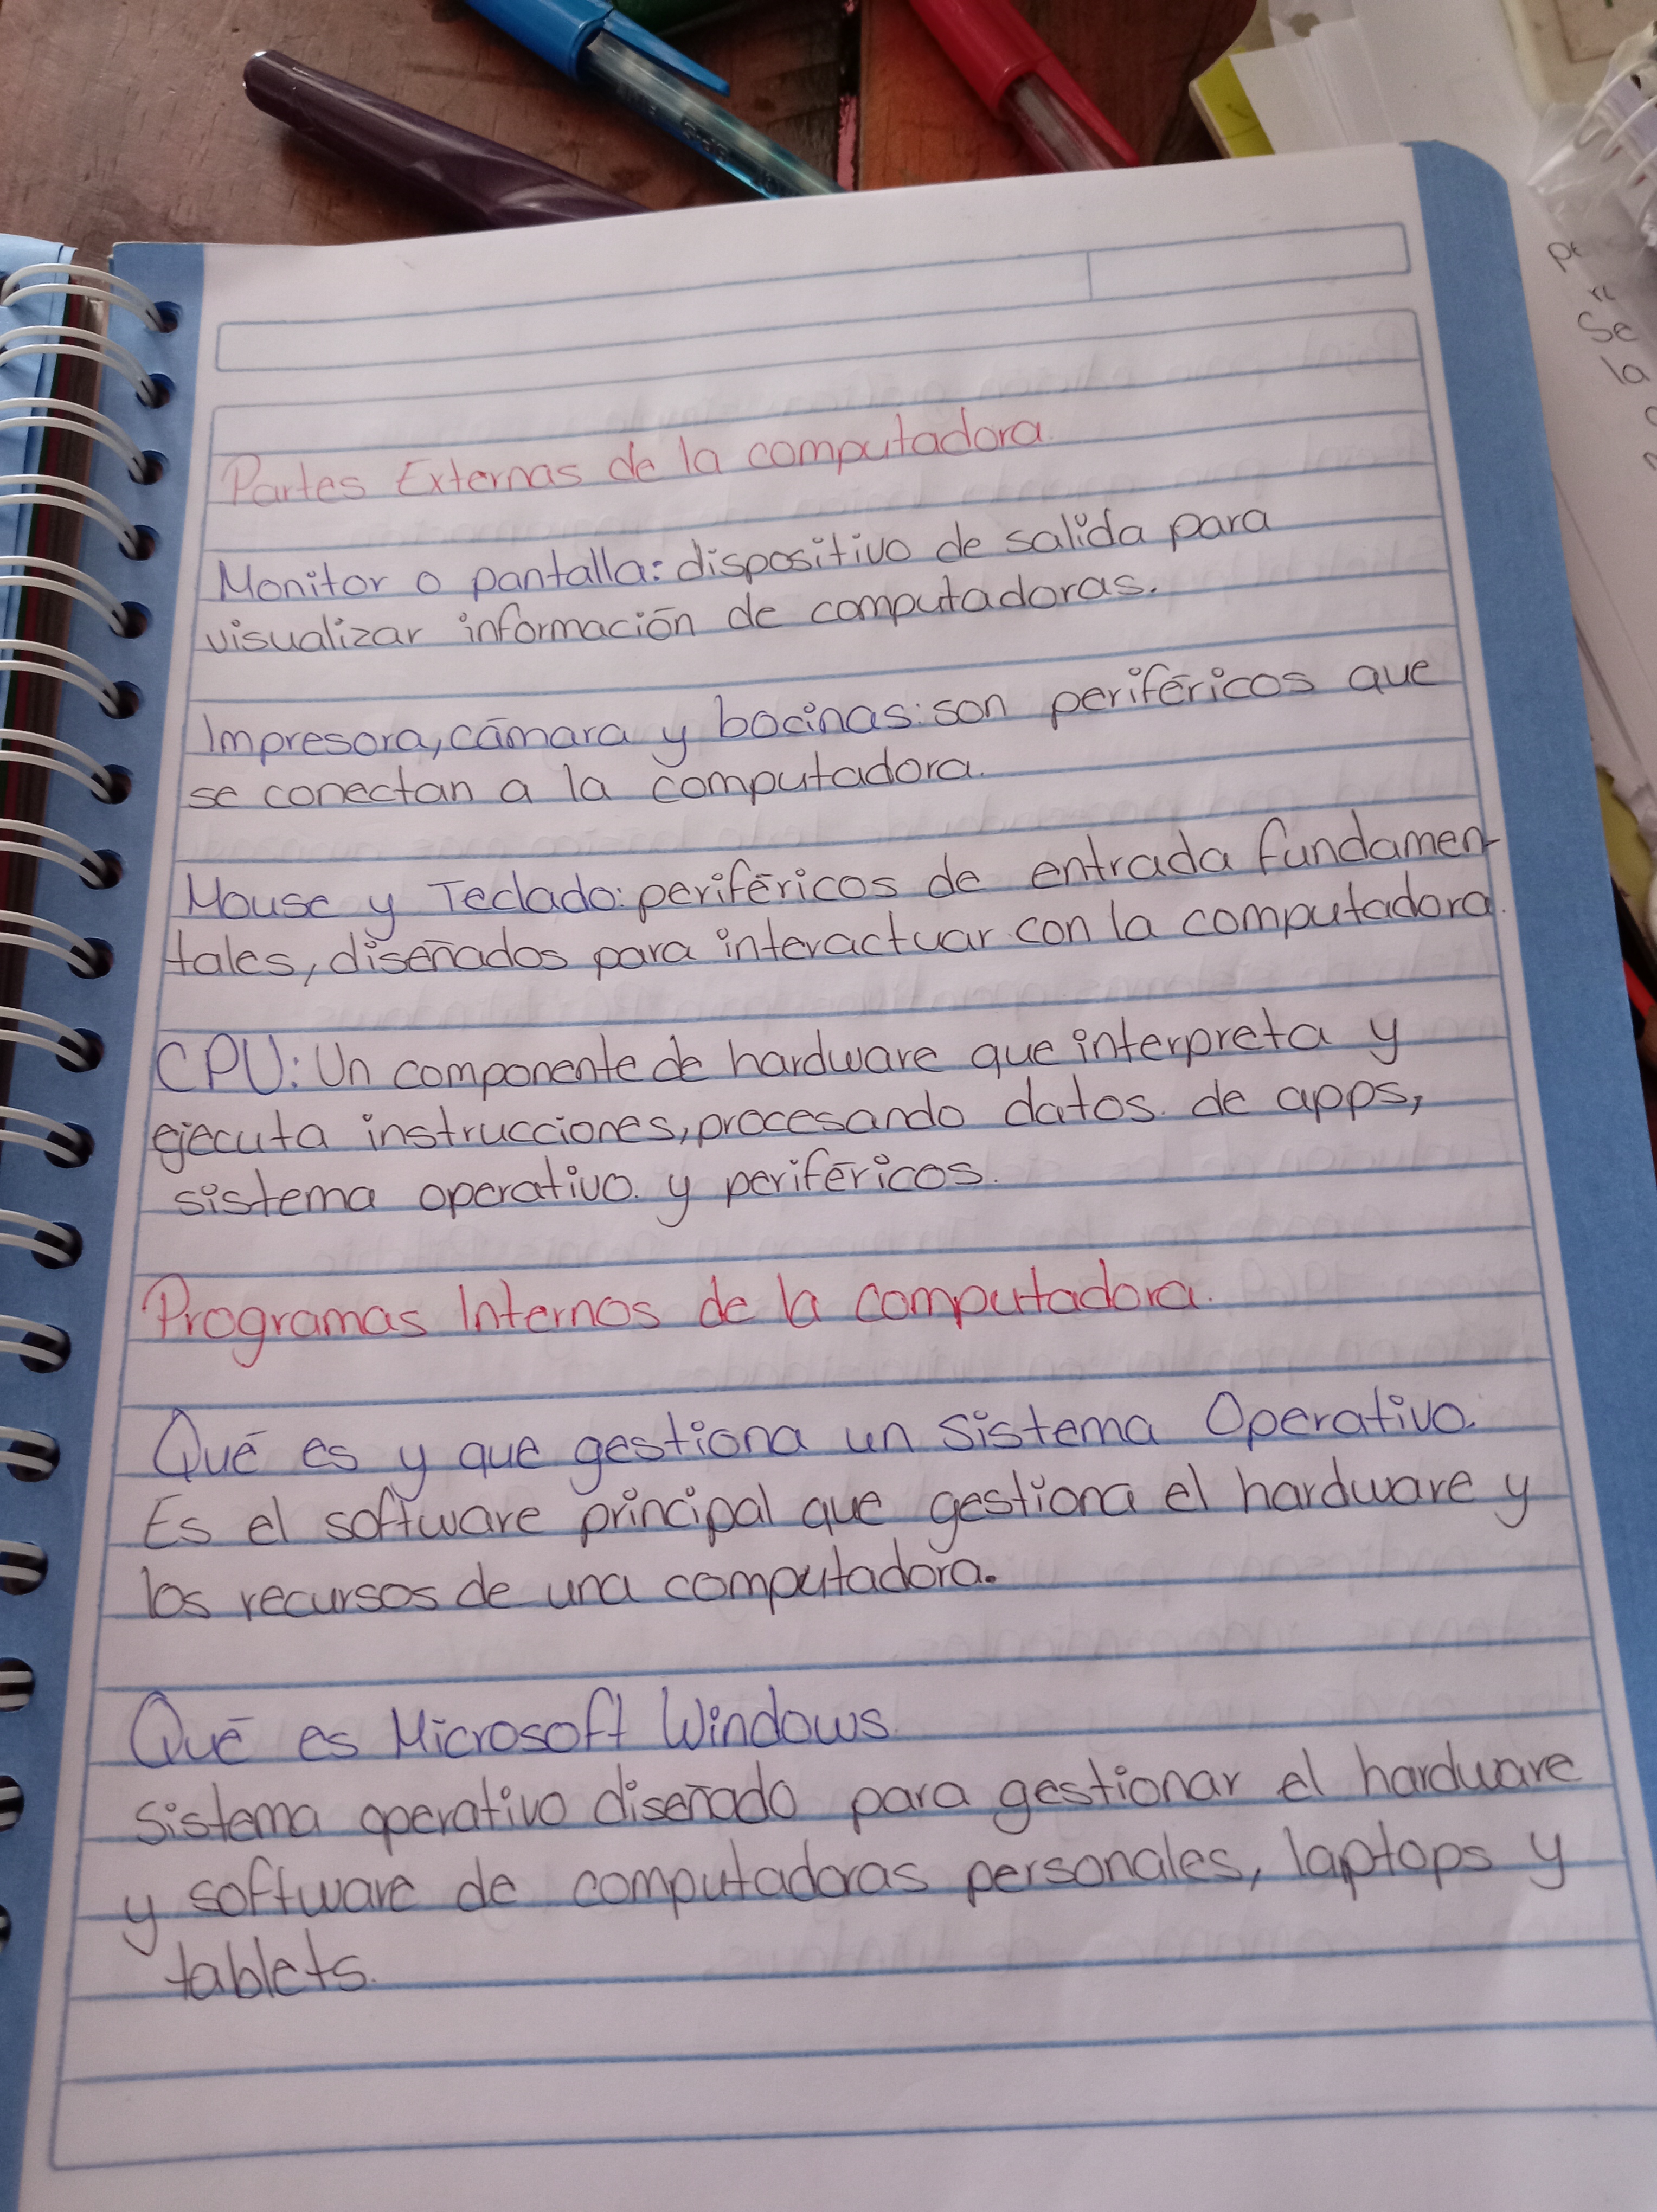 Partes Externas de la computadora.
Monitor o pantalla: dispositivo de salida para
visualizar información de computadoras.
Impresora, cámara y bocinas: son periféricos que
se conectan a la computadora.
Mouse y Teclado: periféricos de entrada fundamen-
tales, diseñados para interactuar con la computadora.
CPU: Un componente de hardware que interpreta y
ejecuta instrucciones, procesando datos de apps,
sistema operativo y periféricos.
Programas Internos de la computadora.
Qué es y que gestiona un Sistema Operativo.
Es el software principal que gestiona el hardware y
los recursos de una computadora.
Qué es Microsoft Windows.
Sistema operativo diseñado para gestionar el hardware
y software de computadoras personales, laptops y
tablets.
Se
la